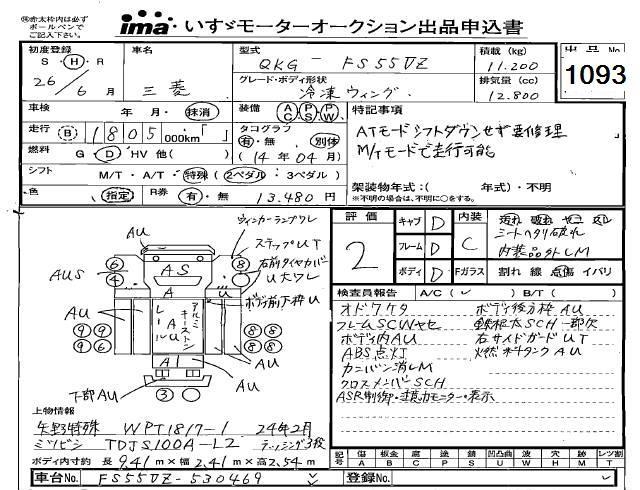 ㊟赤太枠内は必ず
ボールペンで
ご記入下さい。
ima いすゞモーターオークション出品申込書
初度登録 車名 型式 積載(kg) 出品No.
S・H・R QKG - FS55VZ 11.200
26/6月 三菱 グレード・ボディ形状 排気量(cc) 1093
冷凍ウィング 12.800
車検 年 月・抹消 装備 AC PS PW 特記事項
走行 B 1805 000km「 」 タコグラフ ATモードシフトダウンせず要修理
有・無 別体 M/Tモードで走行可能
燃料 G・D・HV 他( ) (14年04月)
シフト M/T・A/T・特殊(2ペダル・3ペダル) 架装物年式:( 年式)・不明
色 指定 R券 有・無 13.480円 ※不明の場合は、不明に○をする。
評価 キャブ D 内装
2 フレーム D C シートヘタリ破れ
ボディ D Fガラス 内装品外しM
割れ 線 点傷 イバリ
検査員報告 A/C( ✓ ) B/T( )
オドケケタ ボディ後方枠AU
フレームSCWサビ 鉄板大SCH一部欠
ボディ内AU 右サイドガードUT
ABS点灯 燃料タンクAU
カニバン消しM
クロスメンバーSCH
ASR制御・モニター・表示
ウィンカーランプワレ
ステップUT
右前タイヤカバー
U大ワレ
ボディ前下枠U
AU
AUS
AS
A
U
レール
アルミキーストン
AU
下部AU
上物情報
矢野特殊 WPT1817-1 24年2月
ミツビシ TDJS100A-L2 ラッシング3段
ボディ内寸約 長 9.41m×幅 2.41m×高 2.54m
記号 傷 板金 腐 塗 錆 凹凸曲 波 穴 M レツ割
A B C P S U W H M T
車台No. FS55VZ-530469 登録No.